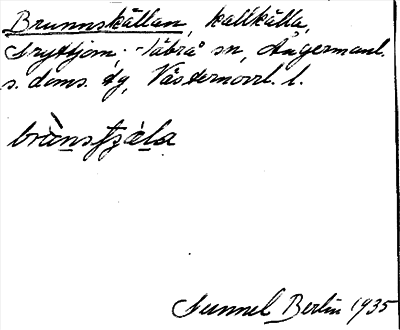 Brunnskällan, kallkälla,
Frytjom, Tåbrå sn, Ångermanl.
s. doms. tg, Västernorrl. l.
brùnstjàla
Gunnel Berlin 1935